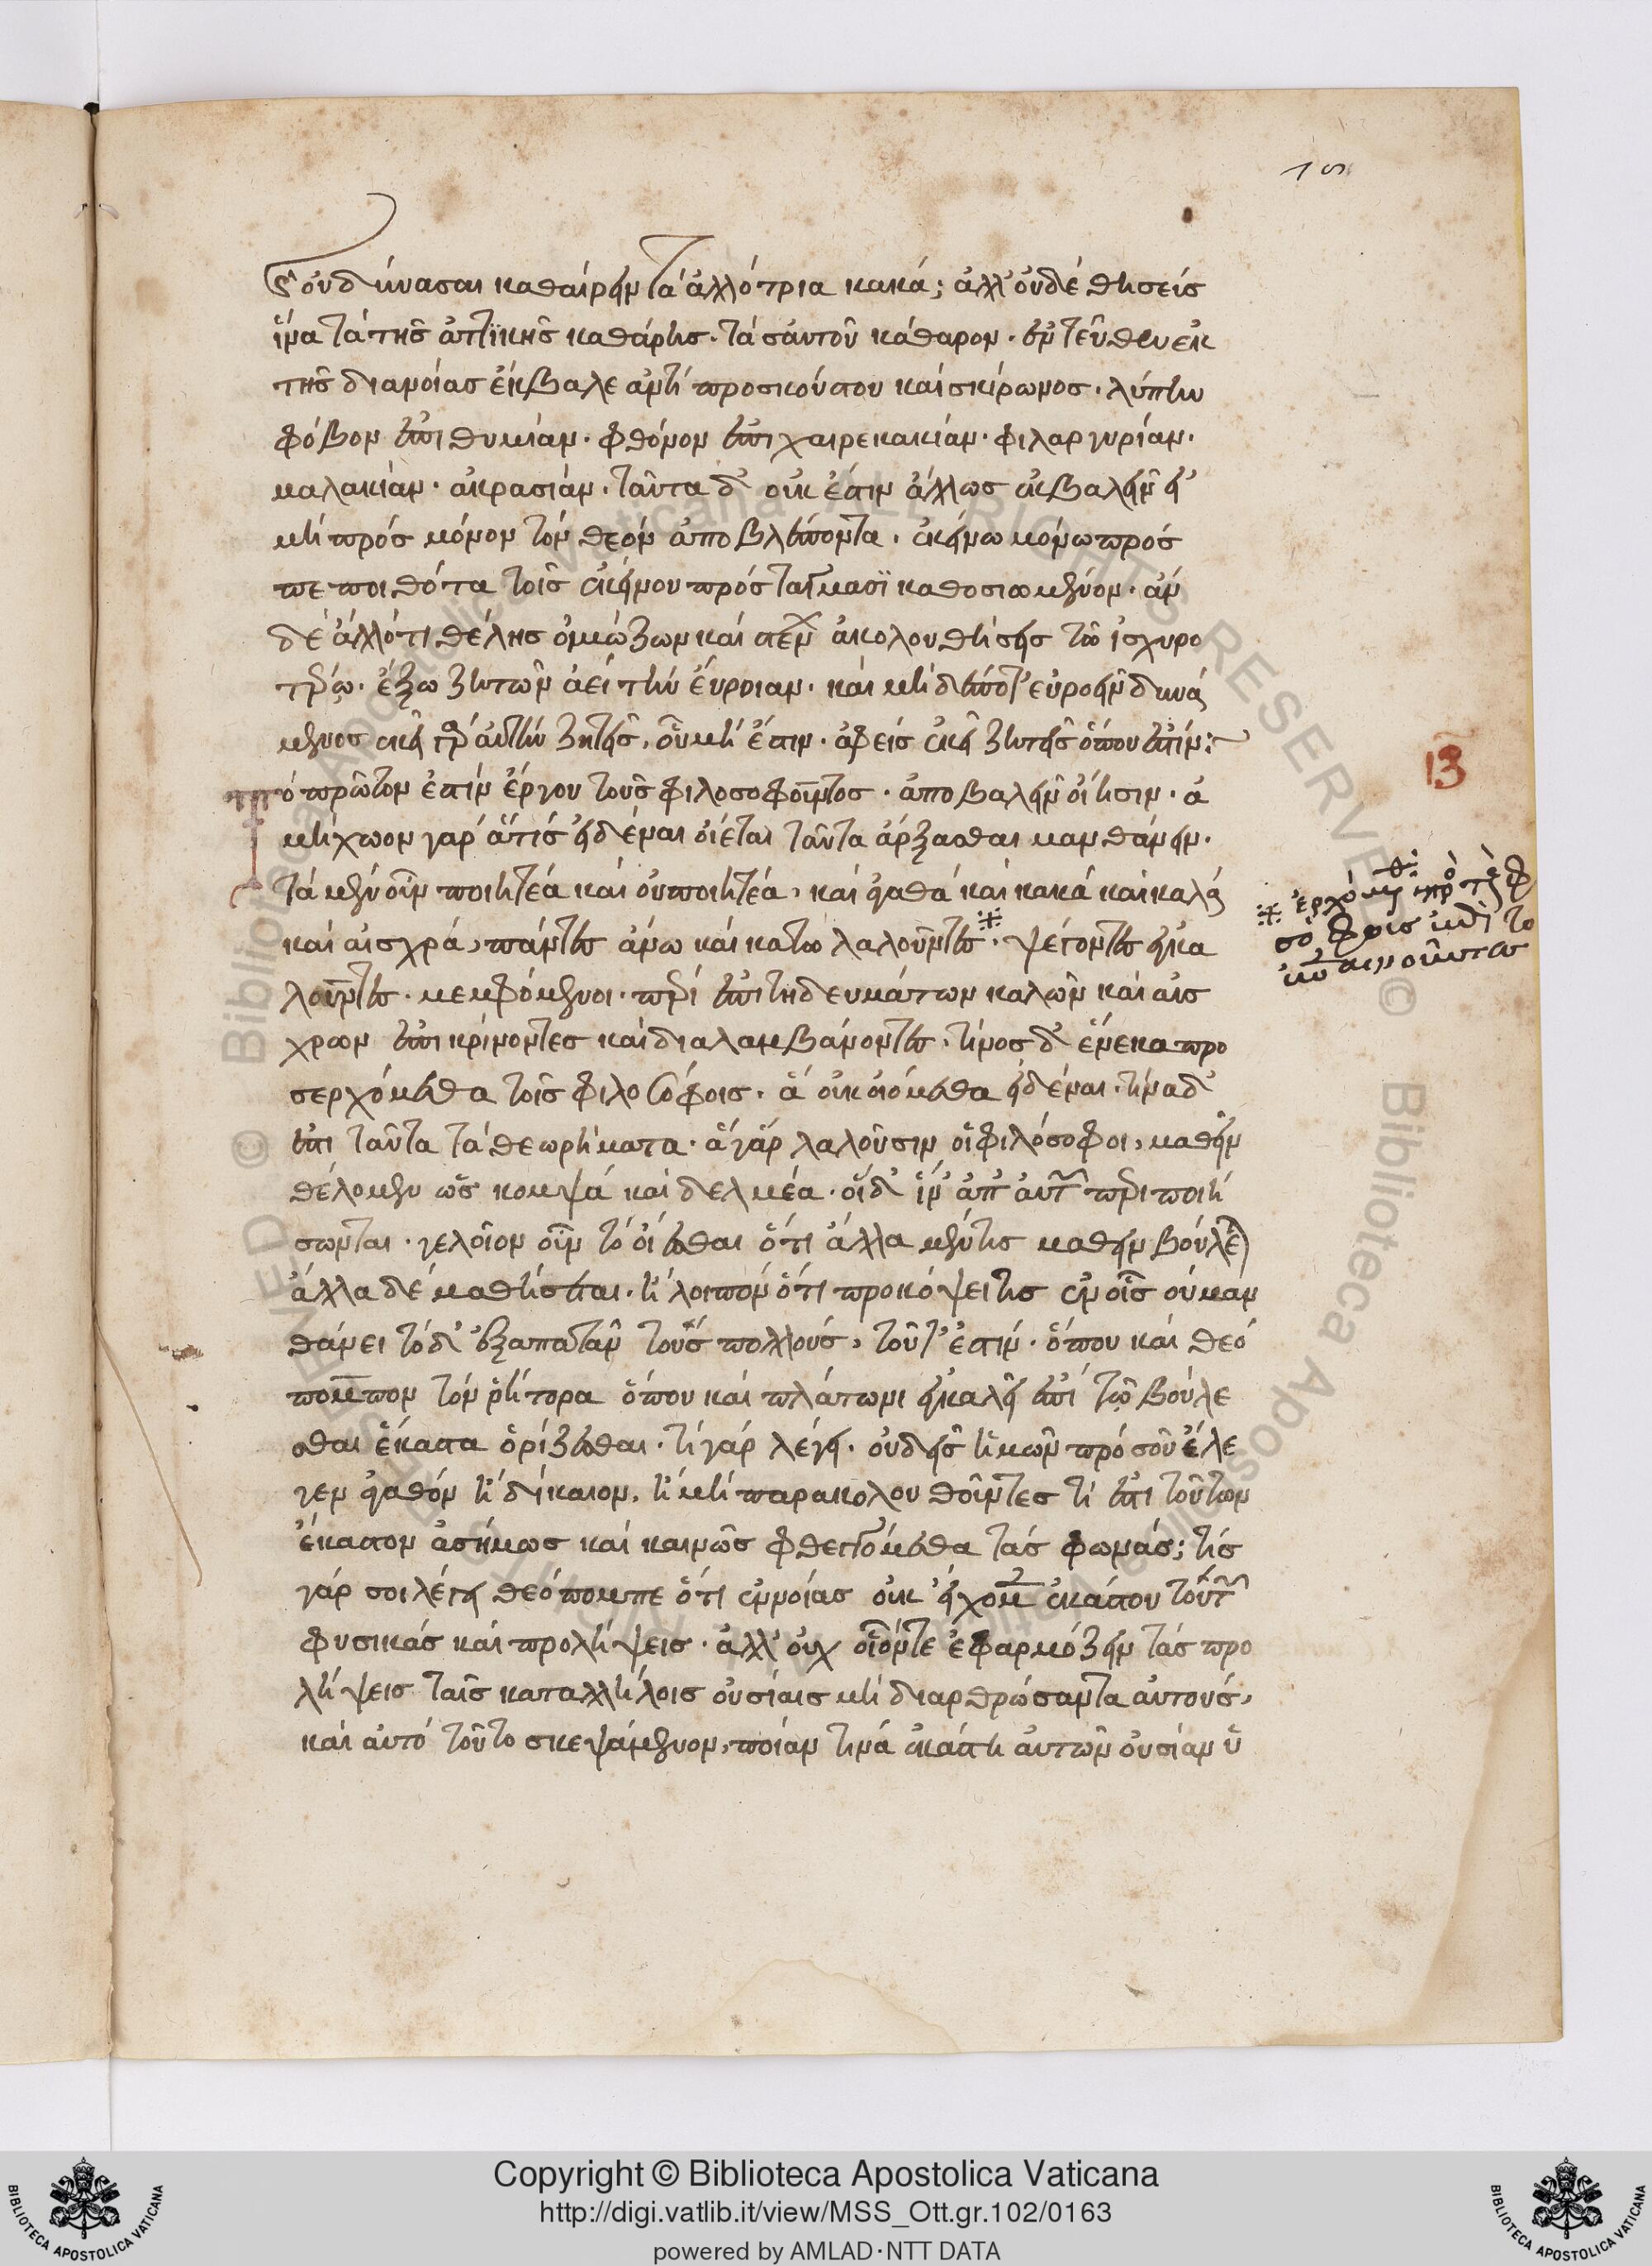 15
οὐ δύνασαι καθαίρειν τὰ ἀλλότρια κακά; ἀλλ' οὐδὲ θησεὺς
ἵνα τὰ τῆς ἀττϊκῆς καθάρῃς. τὰ σαυτοῦ κάθαρον. ἐντεῦθεν ἐκ
τῆς διανοίας ἔκβαλε ἀντὶ προσκούστου καὶ σκίρωνος. λύπην
φόβον ἐπιθυμίαν. φθόνον ἐπιχαιρεκακίαν. φιλαργυρίαν.
μαλακίαν. ἀκρασίαν. ταῦτα δ' οὐκ ἔστιν ἄλλως ἐκβαλεῖν εἰ
μὴ πρὸς μόνον τὸν θεὸν ἀποβλέποντα. ἐκείνω μόνω προσ
πεποιθότα τοῖς ἐκείνου προστάγμασϊ καθοσιωμένον. ἂν
δὲ ἄλλό τι θέλῃς οἰμώζων καὶ στένων ἀκολουθήσεις τῶ ἰσχυρο
τέρῳ. ἔξω ζητῶν ἀεὶ τὴν εὔροιαν. καὶ μηδέποτ' εὐροεῖν δυνά
μενος ἐκεῖ γὰρ αὐτὴν ζητεῖς, οὗ μή ἐστιν. ἀφεὶς ἐκεῖ ζητεῖν ὅπου ἐστίν:
ὸ πρῶτον ἐστὶν ἔργου τοῦς φιλοσοφοῦντος. ἀποβαλεῖν οἴησιν. ἀ
μήχωον γὰρ ἅ τίς εἰδέναι οἴεται ταῦτα ἄρξασθαι μανθάνειν.
τὰ μὲν οὖν ποιητέα καὶ οὐ ποιητέα, καὶ ἀγαθὰ καὶ κακὰ καὶ καλὰ
καὶ αἰσχρά, πάντες ἄνω καὶ κάτω λαλοῦντες. ψέγοντες ἐγκα
λοῦντες. μεμφόμενοι. περὶ ἐπιτηδευμάτων καλῶν καὶ αἰσ
χρῶν ἐπικρίνοντες καὶ διαλαμβάνοντες. τίνος δ' ἕνεκα προ
σερχόμεθα τοῖς φιλοσόφοις. ἃ οὐκ οἰόμεθα εἰδέναι. τίνα δ'
ἐστι ταῦτα τὰ θεωρήματα. ἃ γὰρ λαλοῦσιν οἱ φιλόσοφοι, μαθεῖν
θέλομεν ὡς κομψὰ καὶ δελμέα. οἱ δ' ἵν' ἀπ' αὐτῶν περιποιή
σωνται. γελοῖον οὖν τὸ οἴεσθαι ὅτι ἄλλα μέν τις μαθεῖν βούλεται
ἄλλα δὲ μαθήσεται. ἢ λοιπὸν ὅτι προκόψει τις ἐν οἷς οὐ μαν
θάνει τὸ δ' ἐξαπατᾶν τοὺς πολλούς, τοῦτ' ἐστίν. ὅπου καὶ θεό
πομπον τὸν ῥήτορα ὅπου καὶ πλάτωνι ἐγκαλεῖ ἐπὶ τῷ βούλε
σθαι ἕκαστα ὁρίζεσθαι. τί γὰρ λέγει. οὐδεὶς ἡμῶν πρὸ σοῦ ἔλε
γεν ἀγαθὸν ἢ δίκαιον, ἢ μὴ παρακολουθοῦντες τί ἐστι τούτων
ἕκαστον ἀσήμως καὶ καινῶς φθεγγόμεθα τὰς φωνάς; τίς
γάρ σοι λέγει θεόπομπε ὅτι ἐννοίας οὐκ εἴχομεν ἑκάστου τούτων
φυσικὰς καὶ προλήψεις. ἀλλ' οὐχ οἷόντε ἐφαρμόζειν τὰς προ
λήψεις ταῖς καταλλήλοις οὐσίαις μὴ διαρθρώσαντα αὐτούς,
καὶ αὐτὸ τοῦτο σκεψάμενον, ποίαν τινὰ ἑκάστη αὐτῶν οὐσίαν ὑ
13
Copyright © Biblioteca Apostolica Vaticana
http://digi.vatlib.it/view/MSS_Ott.gr.102/0163
powered by AMLAD·NTT DATA